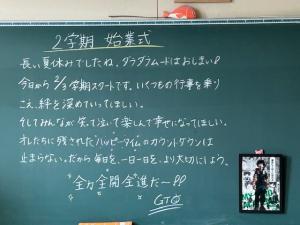 2学期 始業式
長い夏休みでしたね、ダラダラムードはおしまい!!
今日から 2/3学期スタートです。いくつもの行事を乗り
こえ、絆を深めていってほしい。
そしてみんなが笑って泣いて楽しんで幸せになってほしい。
オレたちに残された"ハッピータイム"のカウントダウンは
止まらない。だから毎日を、一日一日を、より大切にしよう。
全力全開全進だ〜!!